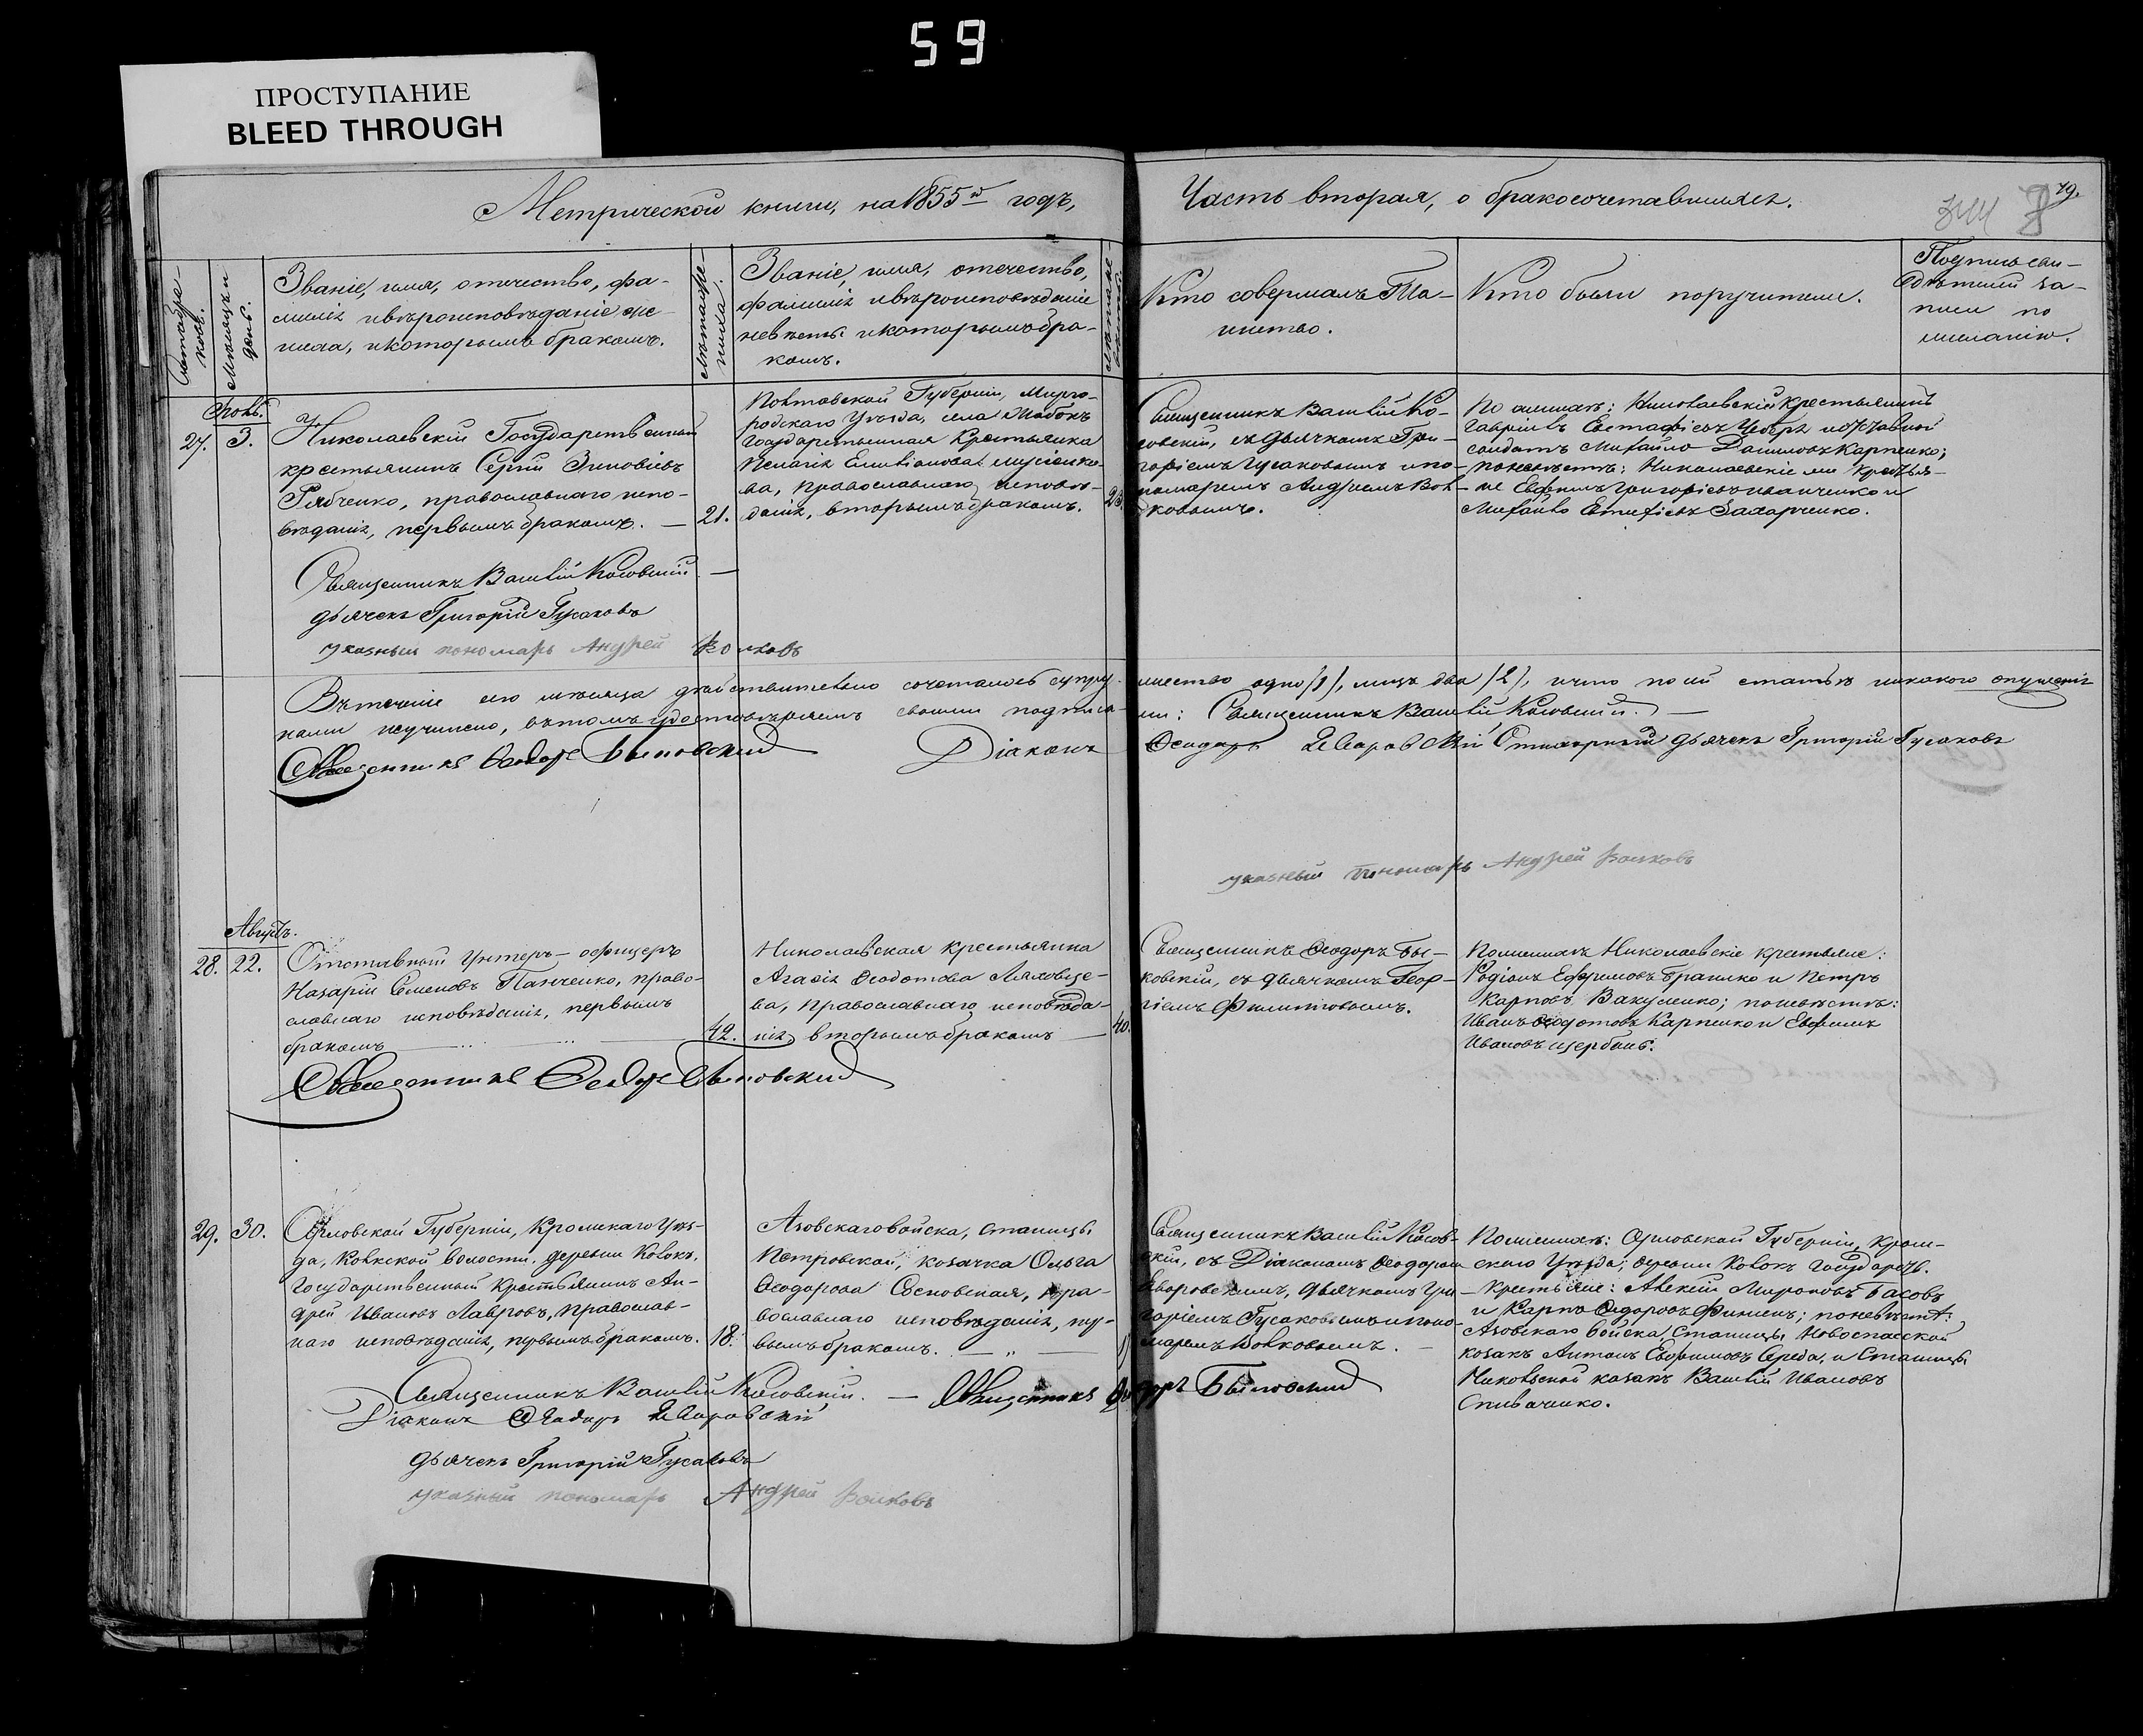 59
ПРОСТУПАНИЕ
BLEED THROUGH
Метрической книги, на 1855й годъ,
Часть вторая, о бракосочетавшихся.
79.
Мѣсяцъ и
день.
Званіе, имя, отчество, фа-
милія и вѣроисповѣданіе же-
ниха, и которымъ бракомъ.
Лѣта же-
ниха.
Званіе, имя, отчество,
фамилія и вѣроисповѣданіе
невѣсты и которымъ бра-
комъ.
Кто совершалъ Та-
инство.
Кто были поручители.
Подпись сви-
дѣтелей за-
писи по
желанію.
27.
3.
Николаевскій Государственный
крестьянинъ Сергій Зиновіевъ
Рябченко, православнаго испо-
вѣданія, первымъ бракомъ.
21.
Полтавской Губерніи, Мирго-
родскаго Уѣзда, села
Государственная Крестьянка
Пелагія Емиліанова
ва, православнаго исповѣ-
данія, вторымъ бракомъ.
23.
Священникъ Василій Ко-
совскій, съ дьячкомъ Гри-
горіемъ Гусаковымъ и по-
номаремъ Андреемъ Вол-
ковымъ.
По женихѣ: Николаевскій крестьянинъ
Гавріилъ Евстафіевъ и отставной
солдатъ Михайло Даниловъ Карпенко;
по невѣстѣ: Николаевскіе же крестья-
не Евфимъ Григоріевъ Иванченко и
Михайло Захарченко.
Священникъ Василій Косовскій
дьячекъ Григорій Гусаковъ
указный пономарь Андрей Волковъ
Въ теченіе сего мѣсяца дѣйствительно сочеталось супру-
жество одно /1/, лицъ два /2/, и что по сей статьѣ никакого опущенія
нами неучинено, въ томъ удостовѣряемъ своими подписа-
ми: Священникъ Василій Косовскій.
Священникъ Ѳеодоръ Быковскій
Діаконъ Ѳеодоръ Яворовскій
дьячекъ Григорій Гусаковъ
указный пономарь Андрей Волковъ
Августъ.
28.
22.
Отставный Унтеръ-офицеръ
Назарій Семеновъ Панченко, право-
славнаго исповѣданія, первымъ
бракомъ
42.
Николаевская крестьянка
Агафія Ѳеодотова Ляховце-
ва, православнаго исповѣда-
нія, вторымъ бракомъ
40.
Священникъ Ѳеодоръ Бы-
ковскій, съ дьячкомъ Геор-
гіемъ Филипповымъ.
По женихѣ Николаевскіе крестьяне:
Родіонъ Ефремовъ и Петръ
Карповъ Вакуленко; по невѣстѣ:
Иванъ Ѳеодотовъ Карпенко и Евфимъ
Ивановъ Щербань.
Священникъ Ѳеодоръ Быковскій
29.
30.
Орловской Губерніи, Кромскаго Уѣз-
да, волости, деревни
Государственный Крестьянинъ Ан-
дрей Ивановъ Лавровъ, православ-
наго исповѣданія, первымъ бракомъ.
18.
Азовскаго войска, станицы
Петровской, козачка Ольга
Ѳеодорова Сосновская, пра-
вославнаго исповѣданія, пер-
вымъ бракомъ.
Священникъ Василій Косов-
скій, съ Діакономъ Ѳеодоромъ
Яворовскимъ, дьячкомъ Гри-
горіемъ Гусаковымъ и поно-
маремъ Волковымъ.
По женихѣ: Орловской Губерніи, Кром-
скаго Уѣзда, деревни Государств.
крестьяне: Алексій Мироновъ Басовъ
и Карпъ Ѳедоровъ; по невѣстѣ:
Азовскаго войска, станицы Новоспасской
козакъ Антонъ Евфимовъ Середа, и станицы
Никольской казакъ Василій Ивановъ
Спиваченко.
Священникъ Василій Косовскій.
Священникъ Ѳеодоръ Быковскій
Діаконъ Ѳеодоръ Яворовскій
дьячекъ Григорій Гусаковъ
указный пономарь Андрей Волковъ